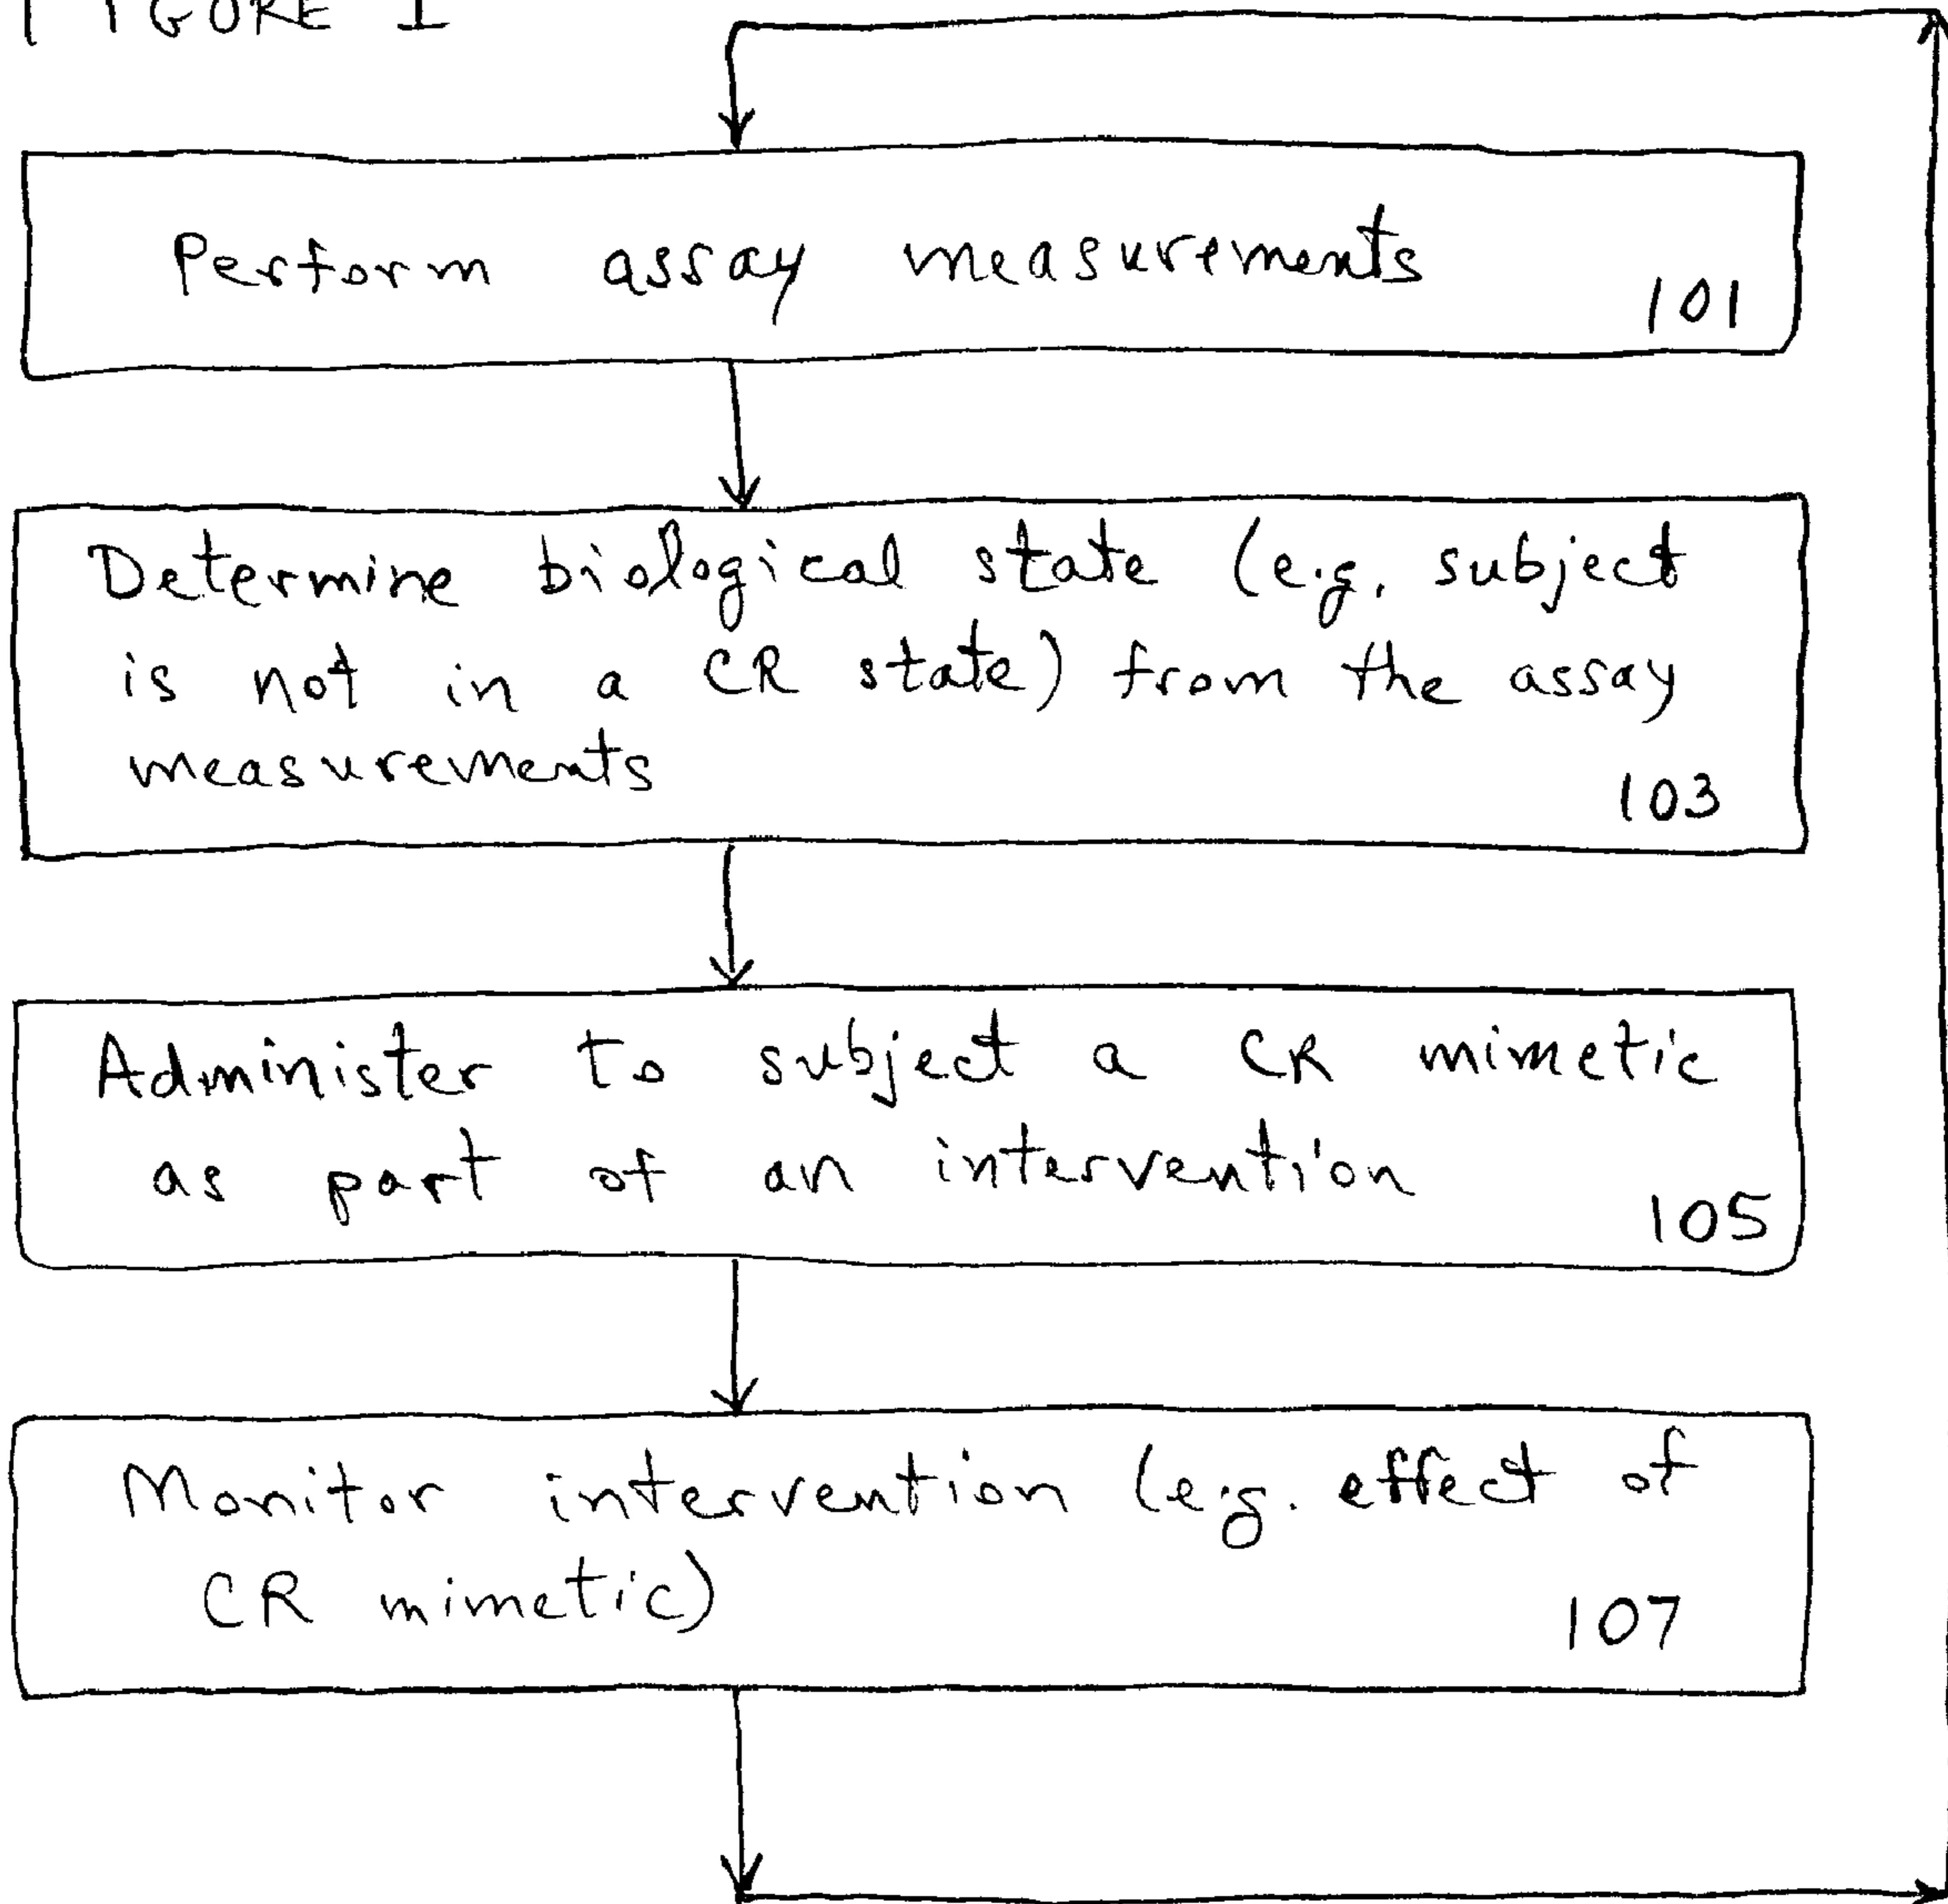 FIGURE 1
Perform assay measurements
101
Determine biological state (e.g. subject
is not in a CR state) from the assay
measurements
103
Administer to subject a CR mimetic
as part of an intervention
105
Monitor intervention (e.g. effect of
CR mimetic)
107